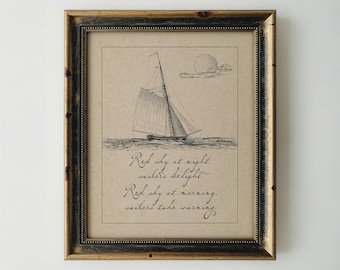 Red sky at night
sailors delight
Red sky at morning,
sailors take warning.